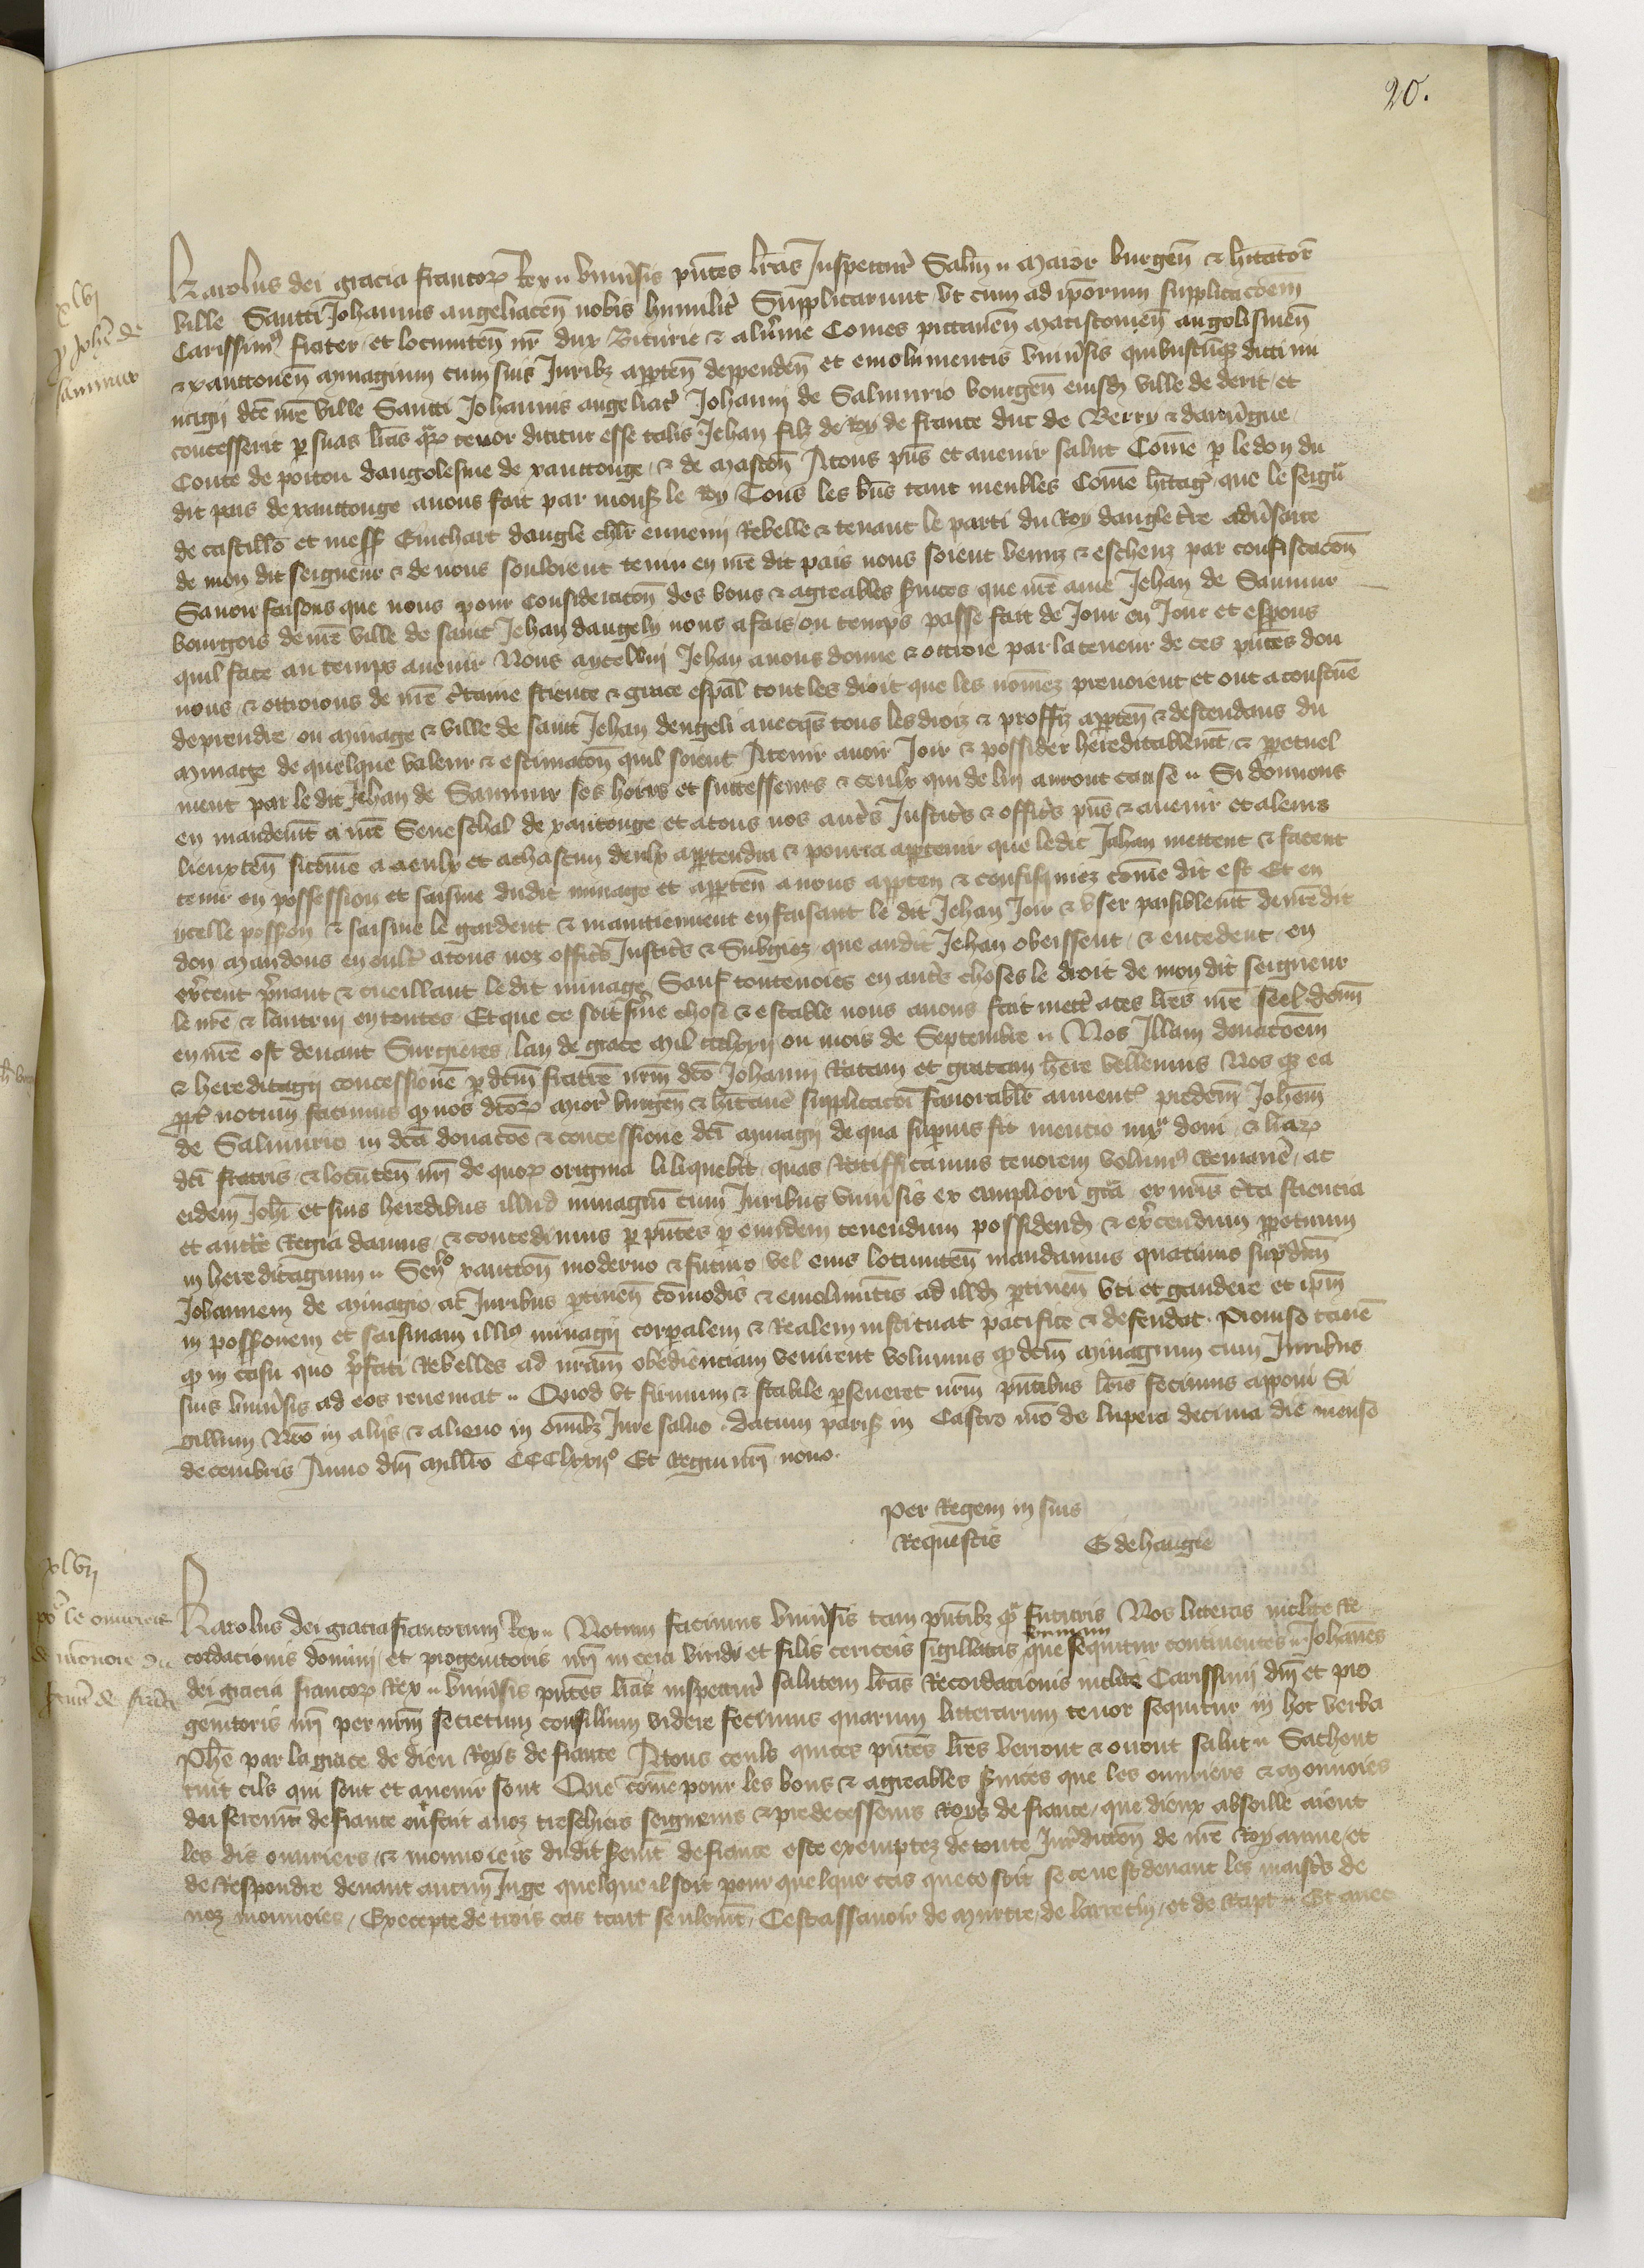 20.
xlvj
p Johē de
Saumur
Karolus dei gracia francoꝝ Rex ꝟ vniuẜsis pn̄tes lr̄as Inspectur̄ Saltm̄ ꝟ Maior burgen̄ & h̄itator̄
ville Sancti Johannis angeliacen̄ nobis humilit̄ Supplicarunt vt cum ad ip̄orum supplicacōem
Carissim⁹ frater et locumten̄ nr̄ dux Biturie & aluernie Comes pictauen̄ Matisconen̄ angolismen̄
& xanctonen̄ Minagium cum suis Juribꝫ apꝑten̄ deppenden̄ et emolumentis vniuẜsis quibuscūqꝫ dicti mi
nagij dc̄e nr̄e ville Sancti Johannis angeliac̄ Johanni de Salmurio bourgen̄ eiusd̄ ville dederit et
concesserit ꝑ suas lr̄as qꝝ tenor dicitur esse talis Jehan filz de Roy de france duc de Berry & dauūgne
Conte de poitou dangolesme de xanctonge & de Mascon̄ Atous pn̄s et auenir salut Com̄e ꝑ le don du
dit pais de xanctonge auons fait par monsʳ le Roy Tous les bn̄s tant meubles Com̄e h̄itaḡ que le seigʳ
de castillō et messʳ Guichart dangle chl̄r ennemj Rebelle & tenant le parti du Roy dangleterre aduẜsaire
de mon dit seigneur & de nous souloient tenir en nr̄e dit pais nous soient venuz & escheuz par confiscacōn
Sauoir faisons que nous pour consideracōn des bons & agreables ẜuices que nr̄e ame Jehan de Saumur
bourgois de nr̄e ville de saint Jehan dangelj nous a fais ou temps passe fait de Jour en Jour et esperons
quil face au temps auenir Nous aycelluj Jehan auons donne & ottroie par la teneur de ces pn̄tes don
nons & ottroions de nr̄e c̄taine science & grace esp̄al tout les droit que les nōmez prenoient et ont acoustūe
deprendre ou Minage & ville de saint Jehan dengeli auecq̄s tous les droiz & proffiz apꝑten̄ & descendans du
Minage de quelque valeur & estimacōn quil soient Atenir auoir Joir & possider hereditablemt̄ & ꝑpetuel
ment par le dit Jehan de Saumur ses hoirs et successeurs & ceulx qui de luj auront cause ꝟ Si donnons
en mandemt̄ a nr̄e Seneschal de xantonge et atous nos autr̄s Justic̄s & offic̄s pn̄s & auenir et aleurs
lieuxten̄ sicōme a ceulx et achascun deulx appartendra & pourra apꝑtenir que ledit Jehan mettent & facent
tenir en possession et saisine dudit minage et apꝑten̄ a nous apꝑten & confisquiez cōme dit est Et en
ycelle poss̄on & saisine le gardent & maintiennent en faisant le dit Jehan Joir & vser paisiblemt̄ de nr̄edit
don Mandons en oultr̄ atous noz offic̄s Justic̄s & Subgiez que audit Jehan obeissent & entendent en
exc̄ent p̄nant & cueillant ledit minage Sauf toutenoies en autr̄s choses le droit de mon dit seigneur
le nr̄e & lautruj en toutes Et que ce soit ferme chose & estable nous auons fait mettr̄ aces lr̄es nr̄e seel donn̄
en nr̄e ost deuant Surgieres lan de grace Mil ccclxxij ou mois de Septembre ꝟ Nos Illam donacōem
& hereditagij concessionē ꝑ dc̄m fratrē nr̄m dc̄o Johanni Ratam et gratam h̄ere vellemus Nos qꝫ ea
ꝓpt̄ notum facimus qꝫ nos dc̄oꝝ Maior̄ burgen̄ & h̄itanc̄ supplicacōi fauorabl̄r annuent̄ predcm̄ Johēm
de Salmurio in dc̄a donacōe & concessione dc̄i Minagij de qua suꝑius fit mencio iuxᵃ doni & lr̄aꝝ
dc̄i fratris & locūten̄ nr̄j de quoꝝ origina li liquebit quas Ratifficamus tenorem volum⁹ Remaner̄ ac
eidem Johī et suis heredibus illud minagiū cum Juribus vniuẜsis ex ampliori gr̄a ex nr̄is c̄ta sciencia
et aucte Regia damus & concedimus ꝑ pn̄tes ꝑ eundem tenendum possidend̄ & exc̄endum ꝑpetuum
in hereditagium ꝟ Senˡᵒ xancton̄ moderno & futuro vel eius locumten̄ mandamus quatinus sup̄dc̄m
Johannem de Minagio ac Juribus ꝑtinen̄ cōmodis & emolumt̄is ad illd̄ ꝑtinen̄ vti et gaudere et ip̄m
in poss̄onem et saisinam illi⁹ minagij corporalem & Realem instituat pacifice & defendat. Prouiso tamē
qꝫ in casu quo p̄fati Rebelles ad nr̄am obedienciam venirent volumus qꝫ dc̄m Minagium cum Juribus
suis vniuẜsis ad eos reueniat ꝟ Quod vt firmum & stabile ꝑseueret nr̄m pn̄tibus lr̄is fecimus apponi Si
gillum Nr̄o in alijs & alieno in om̄ibꝫ Jure saluo. Datum parisʳ in Castro nr̄o de lupera decima die mense
decembris Anno dn̄j Mill̄o CCCLxxijº Et Regni nr̄j nono.
Per Regem in suis
Requestis G dehangie
xlvij
poʳ le ouuriers
& mōnoie du
ẜmt̄ de frāce
Karolus dei gracia francorum Rex ꝟ Notum facimus vniuẜsis tam pn̄tibꝫ qᵃ futuris Nos litteras inclite Re
cordacionis domini et progenitoris nr̄j in cera viridi et filis cericeis sigillatas que sequitur continentes ꝟ Johannes
dei gracia francoꝝ Rex ꝟ vniuẜsis pn̄tes lr̄as inspectur̄ salutem lr̄as Recordacionis inclite Carissimj dn̄j et pro
genitoris nr̄j per nr̄m secretum consilium videre fecimus quarum litterarum tenor sequitur in hec verba
Phē par la grace de dieu Roys de france Atous ceulx qui ces pn̄tes lr̄es verront & orront salut ꝟ Sachent
tuit cils qui sont et auenir sont Que cōme pour les bons & agreables ẜuices que les ouuriers & Monnoies
dei seremt̄ de france ont fait anoz treschiers seigneurs & predecesseurs Roys de france que dieux absoille aient
les dis ouuriers & monnoieis dudit ẜemt̄ de france este exemptez de toute Jur̄dictōn de nr̄e Royaume et
de Respondre deuant aucun Juge quelque il soit pour quelque cas que ce soit se ce nest deuant les maistr̄s de
noz monnoies / Excepte de trois cas tant seulemt̄ / Cest assauoir de Murtre de larrecin et de Rapt ꝟ Et auec